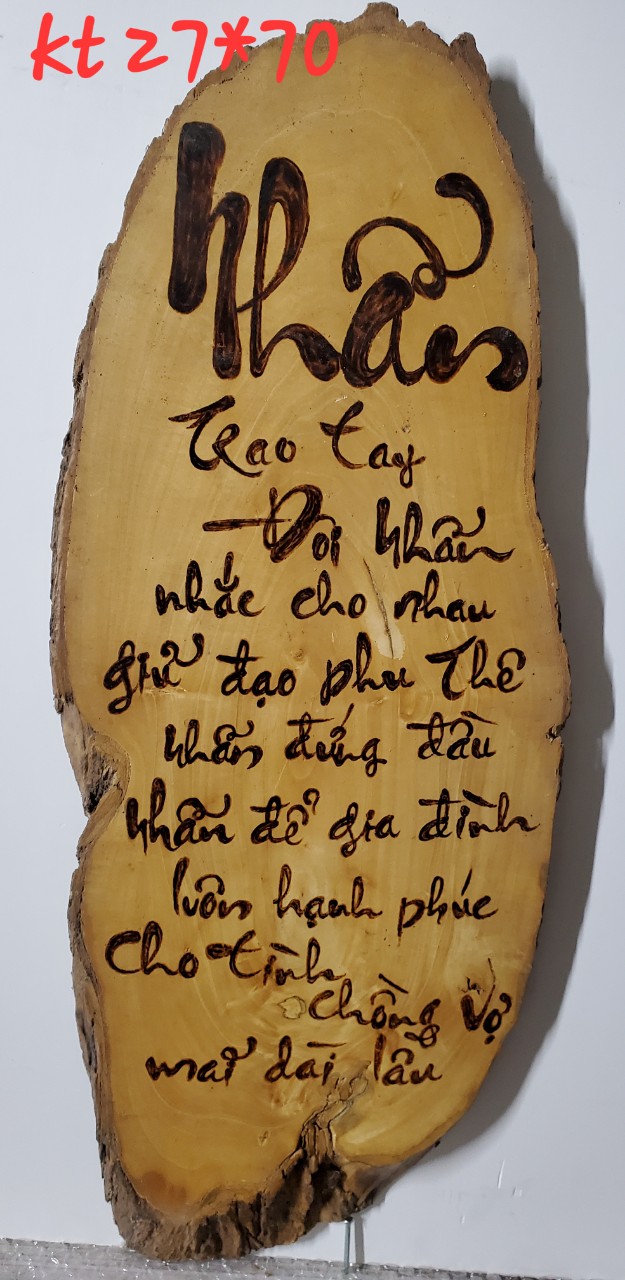 kt 27*70
Nhẫn
Trao tay
Đôi nhẫn
nhắc cho nhau
giữ đạo phu Thê
nhẫn đứng đầu
nhẫn để gia đình
luôn hạnh phúc
cho tình
chồng vợ
mãi dài lâu